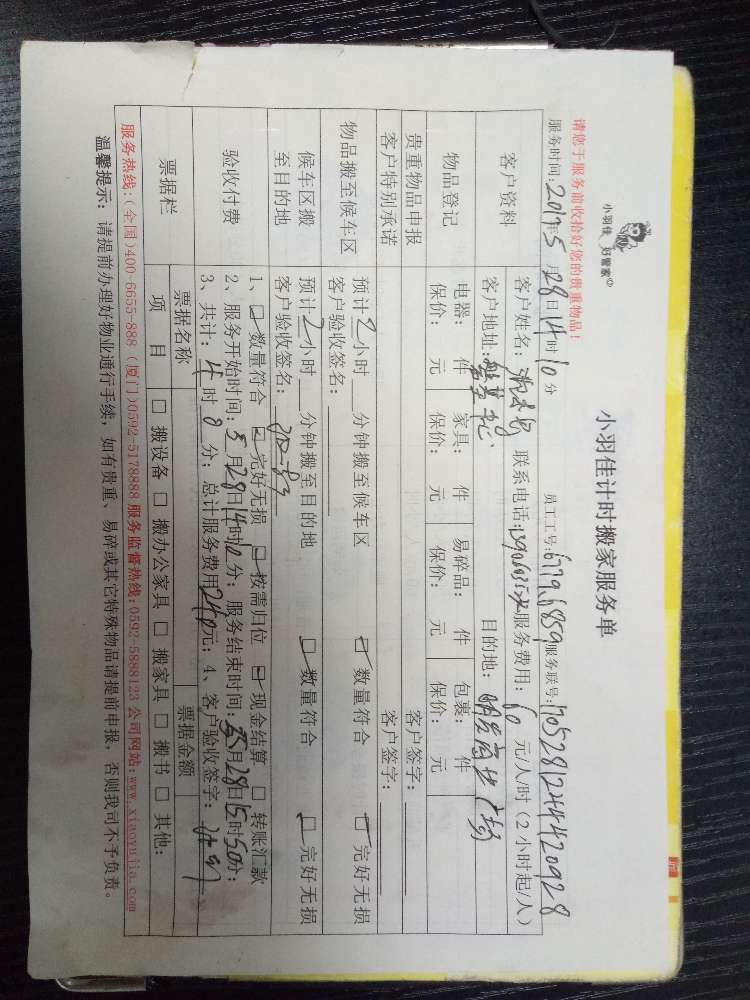 小羽佳 好管家
小羽佳计时搬家服务单
请您于服务前收拾好您的贵重物品!
服务时间:2017年5月28日14时10分 员工工号:6779.6859 服务联号:1705281244420928
客户资料
客户姓名: 联系电话: 服务费用:60元/人/时(2小时起/人)
客户地址: 目的地:明发商业广场
物品登记
电器: 件 家具: 件 易碎品: 件 包裹: 件
保价: 元 保价: 元 保价: 元 保价: 元
贵重物品申报 客户签字:
客户特别承诺 客户签字:
物品搬至候车区
预计2小时 分钟搬至候车区 数量符合 完好无损
客户验收签名:
候车区搬至目的地
预计2小时 分钟搬至目的地 数量符合 完好无损
客户验收签名:
验收付费
1、数量符合 完好无损 按需归位 现金结算 转账汇款
2、服务开始时间:5月28日14时10分;服务结束时间:5月28日15时50分;
3、共计:4时0分;总计服务费用240元;4、客户验收签字:
票据栏 票据名称 票据金额
项目 搬设备 搬办公家具 搬家具 搬书 其他:
服务热线:(全国)400-6655-888 (厦门)0592-5178888 服务监督热线:0592-5888123 公司网站:www.xiaoyujia.com
温馨提示:请提前办理好物业通行手续,如有贵重、易碎或其它特殊物品请提前申报,否则我司不予负责。